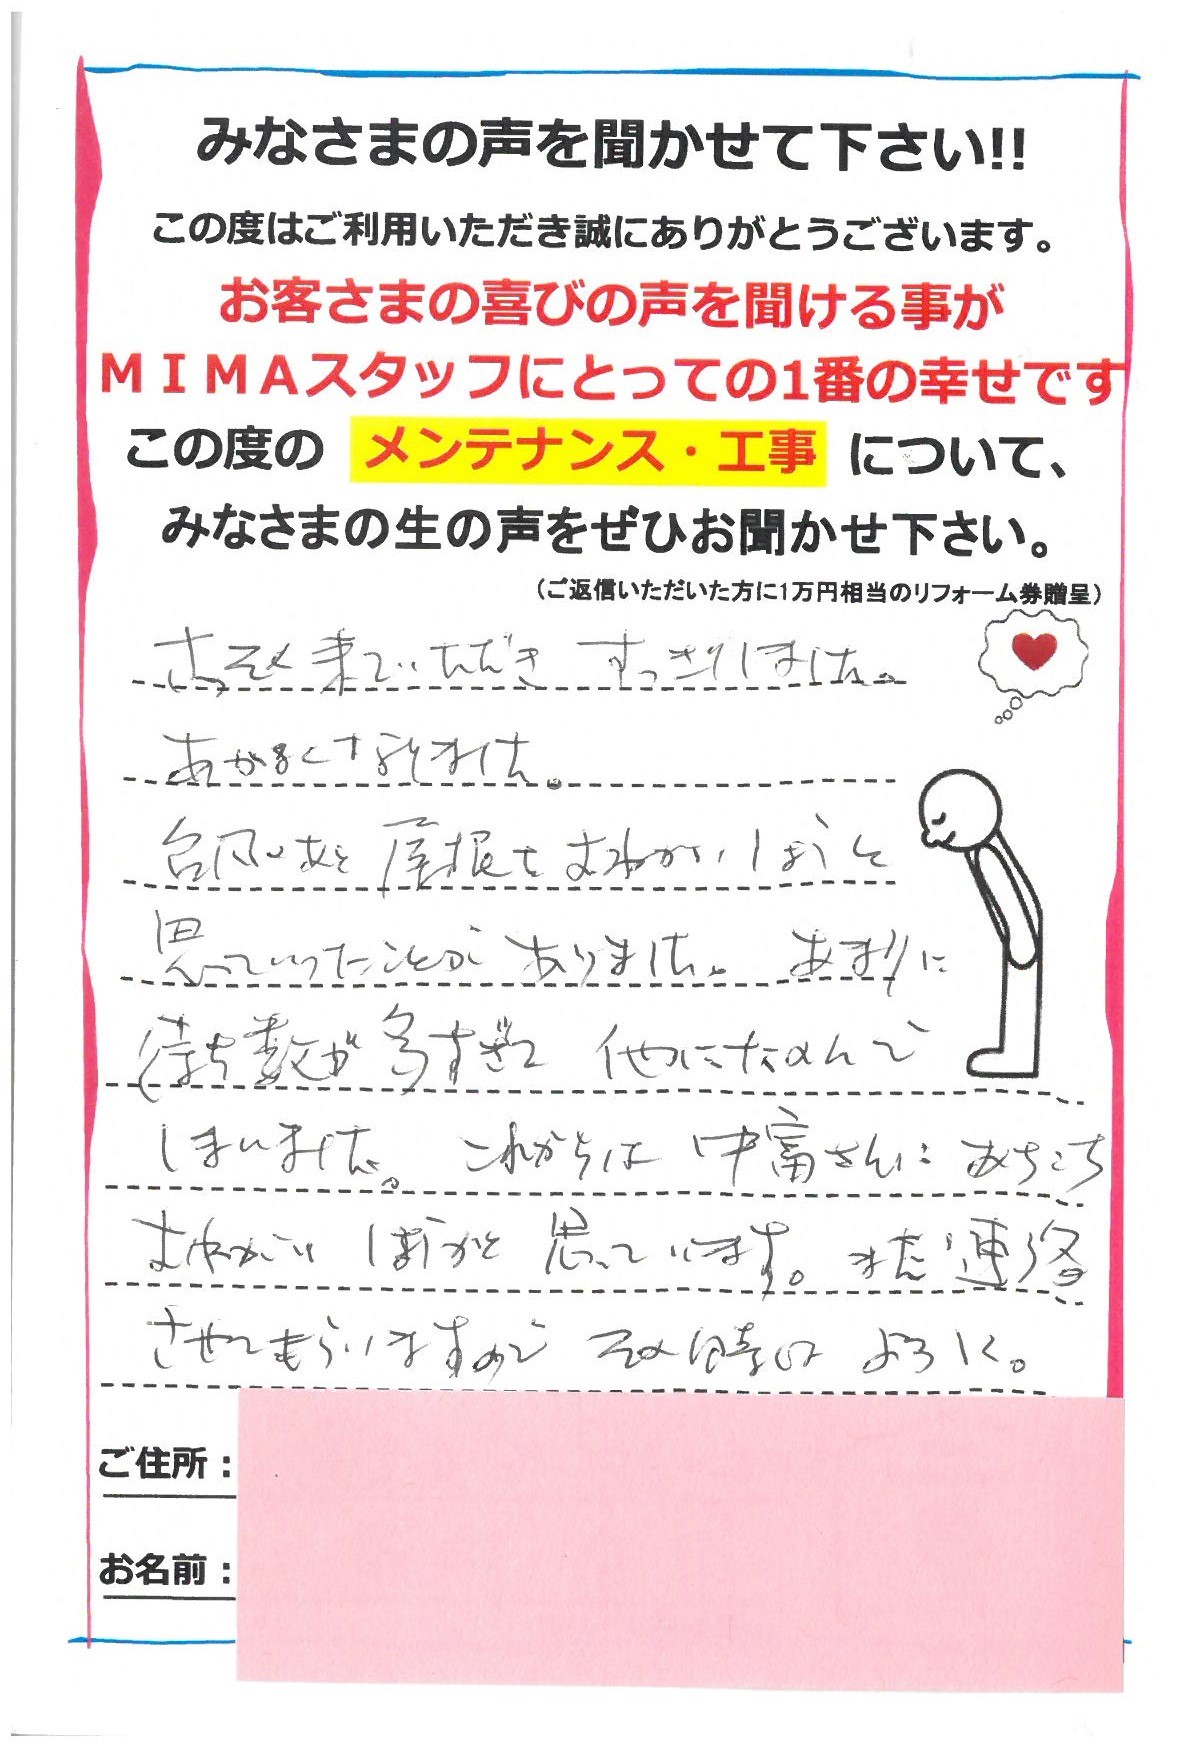 みなさまの声を聞かせて下さい!!
この度はご利用いただき誠にありがとうございます。
お客さまの喜びの声を聞ける事が
ＭＩＭＡスタッフにとっての1番の幸せです
この度の メンテナンス・工事 について、
みなさまの生の声をぜひお聞かせ下さい。
（ご返信いただいた方に1万円相当のリフォーム券贈呈）
さっそく来ていただき すっきりしました。
あかるくなりました。
台風のあと 屋根をおねがいしようと
思っていたことが ありました。 あまりに
待ち数が多すぎて 他にたのんで
しまいました。 これからは 中富さんに あちこち
おねがいしようかと 思っています。 また連絡
させてもらいますので その時は よろしく。
ご住所：
お名前：